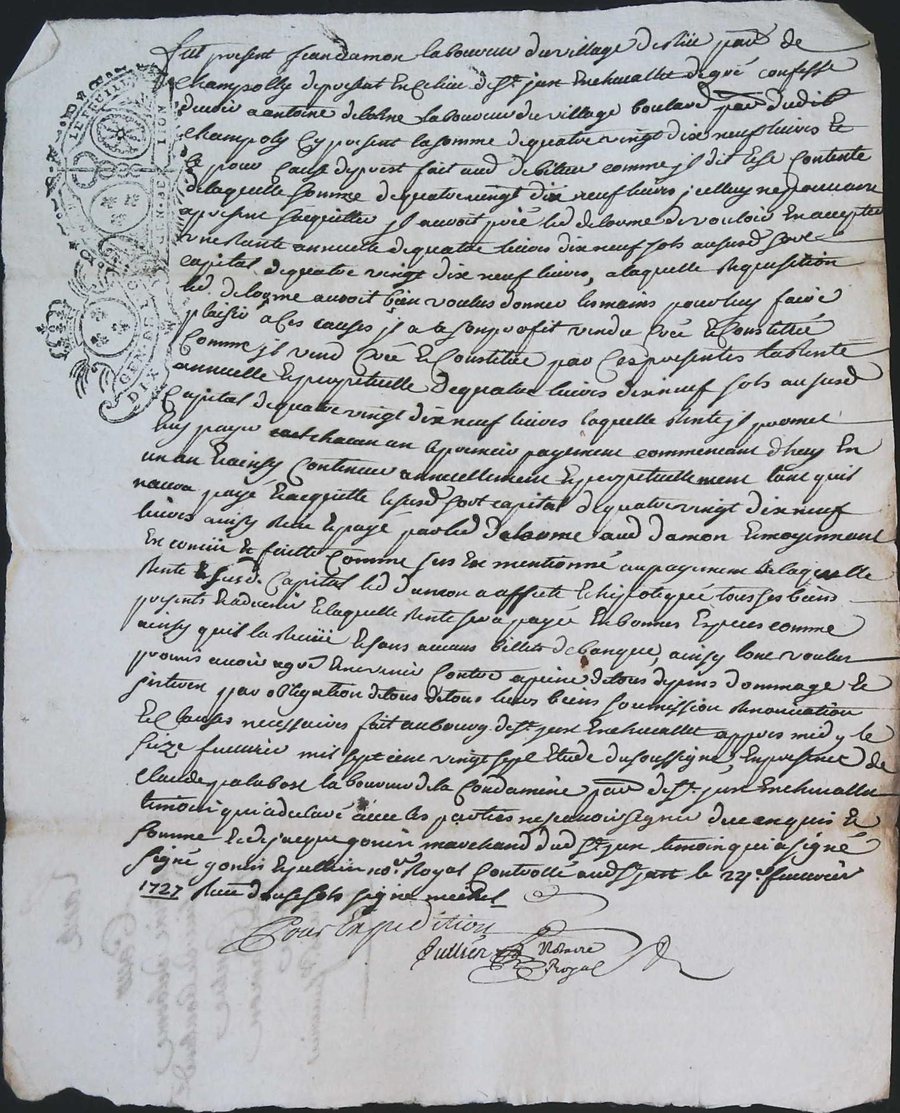 Fut present Jean damon laboureur du village de par.se de
Champolly de present En Celui de St. jean Enchevallet de gré confesse
devoir a antoine delolme laboureur du village boulard parse dudit
champoly Cy present la somme de quatre vingt dix neuf livres Et
Ce pour Cause de prest fait aud debiteur comme jl dit Et se Contente
de laquelle somme de quatre vingt dix neuf livres jcelluy ne pouvant
a present sacquitter jl auroit prié led delorme de vouloir En accepter
une Rente annuelle de quatre livres dix neuf sols au susd sort
Capital de quatre vingt dix neuf livres, a laquelle Requisition
led delorme auroit bien voulus donner les mains pour luy faire
plaisir a Ces causes jl a a son proffit vendu Créé Et Constitué
Comme jl vend Créé Et Constitué par Ces presentes la Rente
annuelle Et perpetuelle de quatre livres dix neuf sols au susd
Capital de quatre vingt dix neuf livres laquelle Rente jl promet
luy payer chacun an le premier payement commencant d'huy En
un an Et ainsy Continuer annuellement Et perpetuellement tant quil
naura payé Et acquitté le susd sort capital de quatre vingt dix neuf
livres ainsy Receu Et payé par led delorme aud damon Et moyennant
En Et faitte Comme sus Est mentionné au payement de laquelle
Rente Et susd. Capital led damon a affecté Et hipotequé tous ses biens
presents Et advenir Et laquelle Rente sera payée En bonnes Especes comme
ainsy qu'il la Receüe Et sans aucuns billets de banque, ainsy lont voulus
promis avoir agré Et n'y venir Contre a peine de tous depens dommage Et
jnterest par obligation de tous de tous leurs biens soumission Renonciation
Et Clauses necessaires fait au bourg de St. jean Enchevallet appres midy le
seize fevrier mil sept cent vingt sept Etude du soussigné, En presence de
claude palabost laboureur de la Condamine parse de St. jean Enchevallet
temoin qui a declaré avec les parties ne scavoir signer de ce Enquis Et
sommé Et de jacque gonin marchand dud St. jean temoin qui a signé
signé gonin Et jullien nore. Royal Controllé aud St. jean le 22e. fevrier
1727 Receu douse sols signé michel
Pour Expedition
Jullien Notaire
Royal
GEN. DE LION
DIX